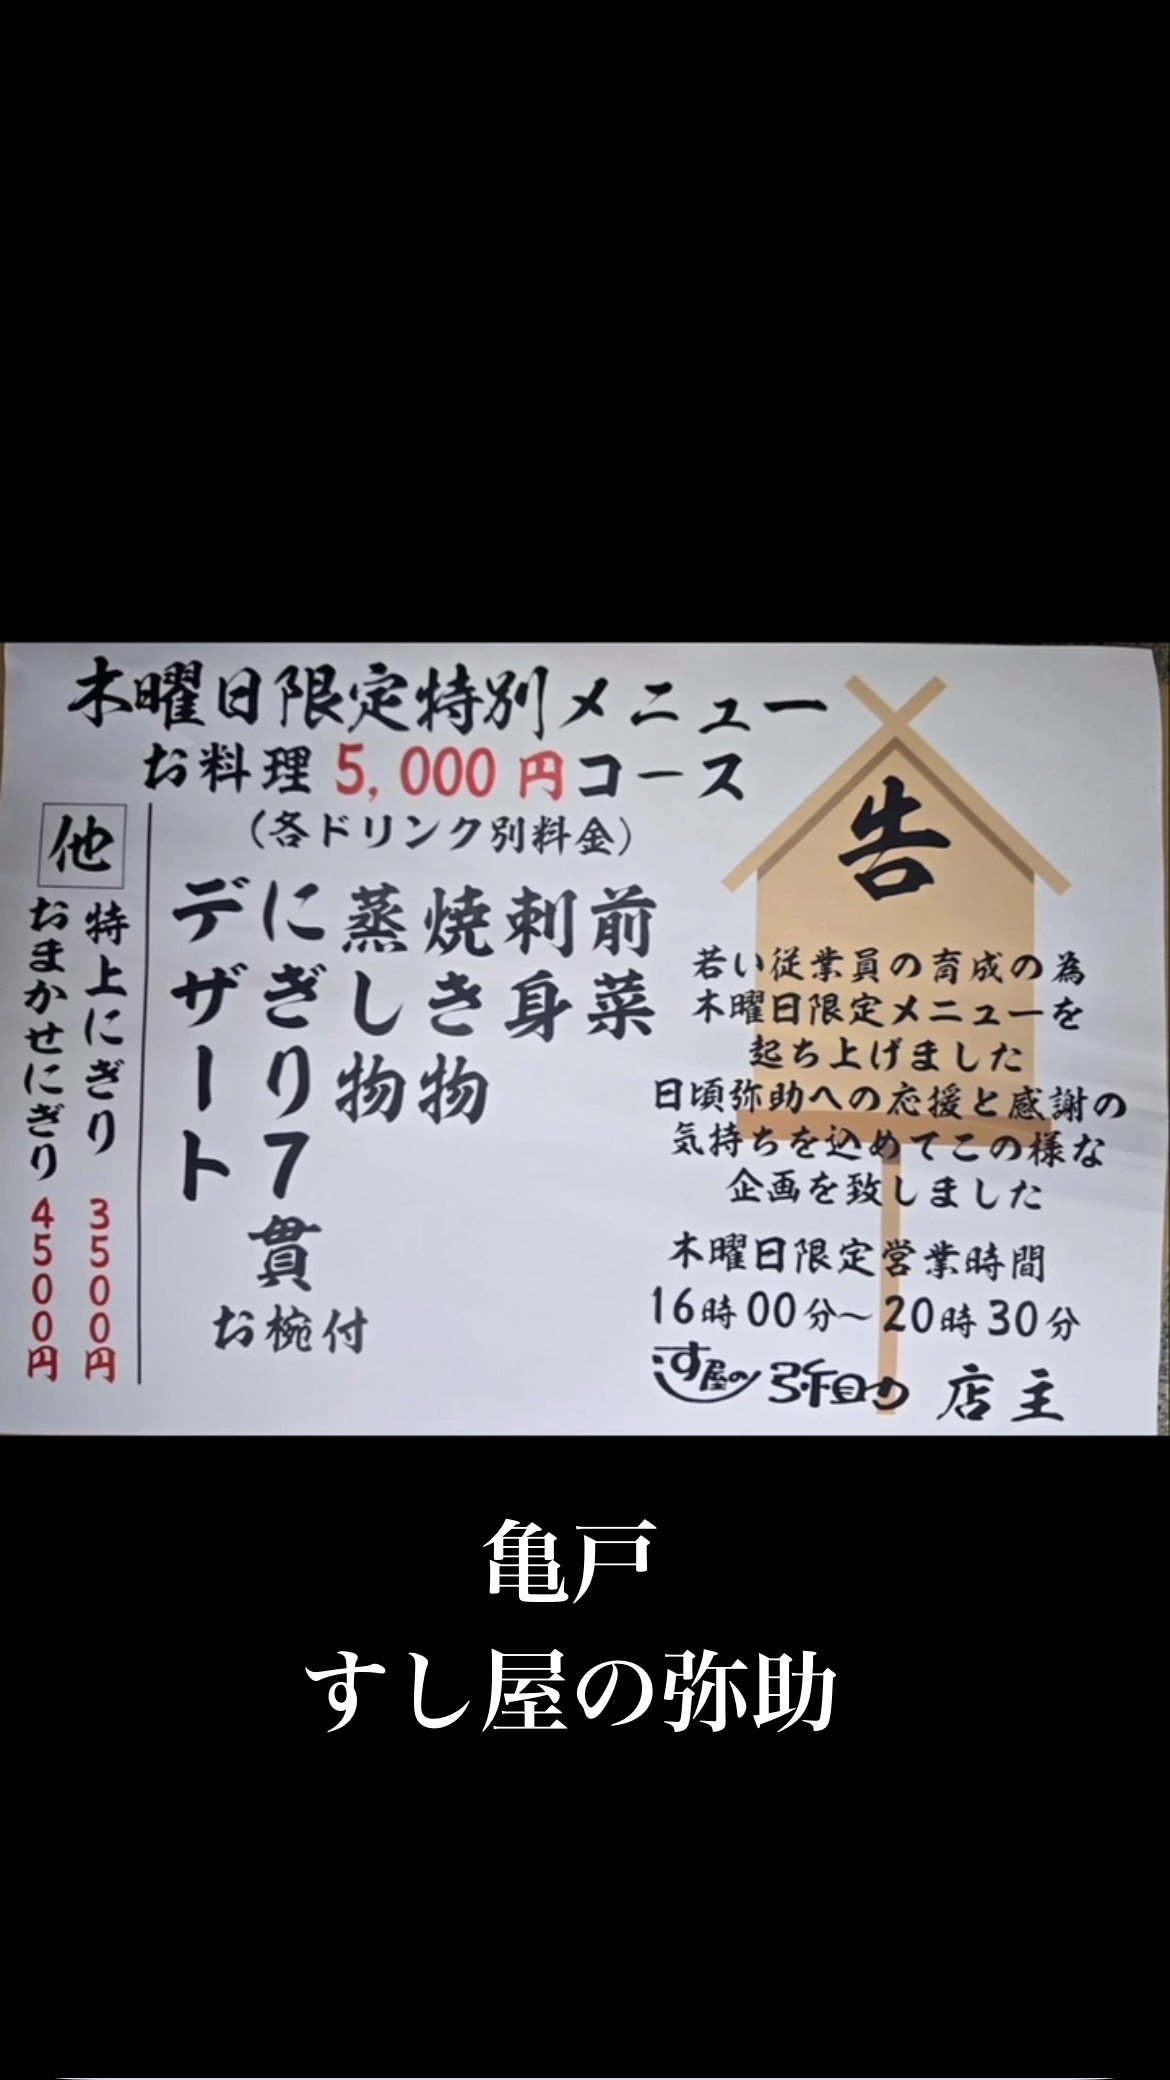 木曜日限定特別メニュー
お料理 5,000円コース
(各ドリンク別料金)
前菜
刺身
焼き物
蒸し物
にぎり7貫
お椀付
デザート
他
特上にぎり 3500円
おまかせにぎり 4500円
告
若い従業員の育成の為
木曜日限定メニューを
起ち上げました
日頃弥助への応援と感謝の
気持ちを込めてこの様な
企画を致しました
木曜日限定営業時間
16時00分～20時30分
すし屋の 弥助 店主
亀戸
すし屋の弥助